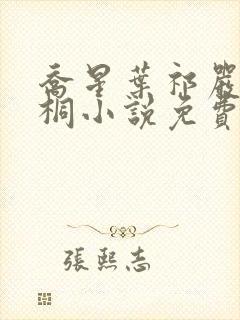 喬星葉祁嚴
桐小說免費
張熙志